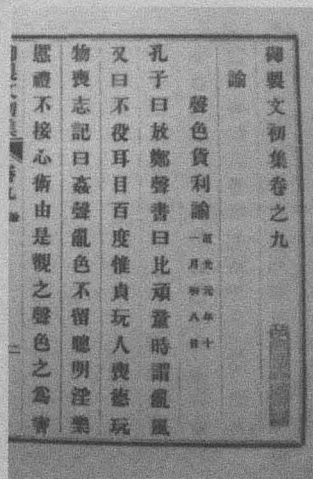 御製文初集卷之九
論
聲色貨利論 道光元年十一月初八日
孔子曰放鄭聲書曰比頑童時謂亂風
又曰不役耳目百度惟貞玩人喪德玩
物喪志記曰姦聲亂色不留聰明淫樂
慝禮不接心術由是觀之聲色之為害